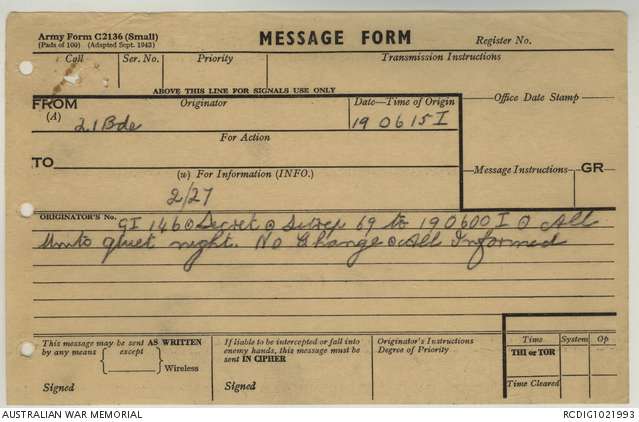 Army Form C2136 (Small)
(Pads of 100) (Adapted Sept. 1943)
MESSAGE FORM
Register No.
Call Ser. No. Priority Transmission Instructions
ABOVE THIS LINE FOR SIGNALS USE ONLY
FROM
(A)
Originator
Date—Time of Origin
Office Date Stamp
21 Bde
190615I
For Action
TO
(w) For Information (INFO.)
Message Instructions GR
2/27
ORIGINATOR'S No.
GI 146 ⊙ Secret ⊙ Sitrep 69 to 190600 I ⊙ All
Units quiet night. No Change ⊙ All Informed
This message may be sent AS WRITTEN
by any means except
Wireless
Signed
If liable to be intercepted or fall into
enemy hands, this message must be
sent IN CIPHER
Signed
Originator's Instructions
Degree of Priority
Time System Op
THI or TOR
Time Cleared
AUSTRALIAN WAR MEMORIAL
RCDIG1021993